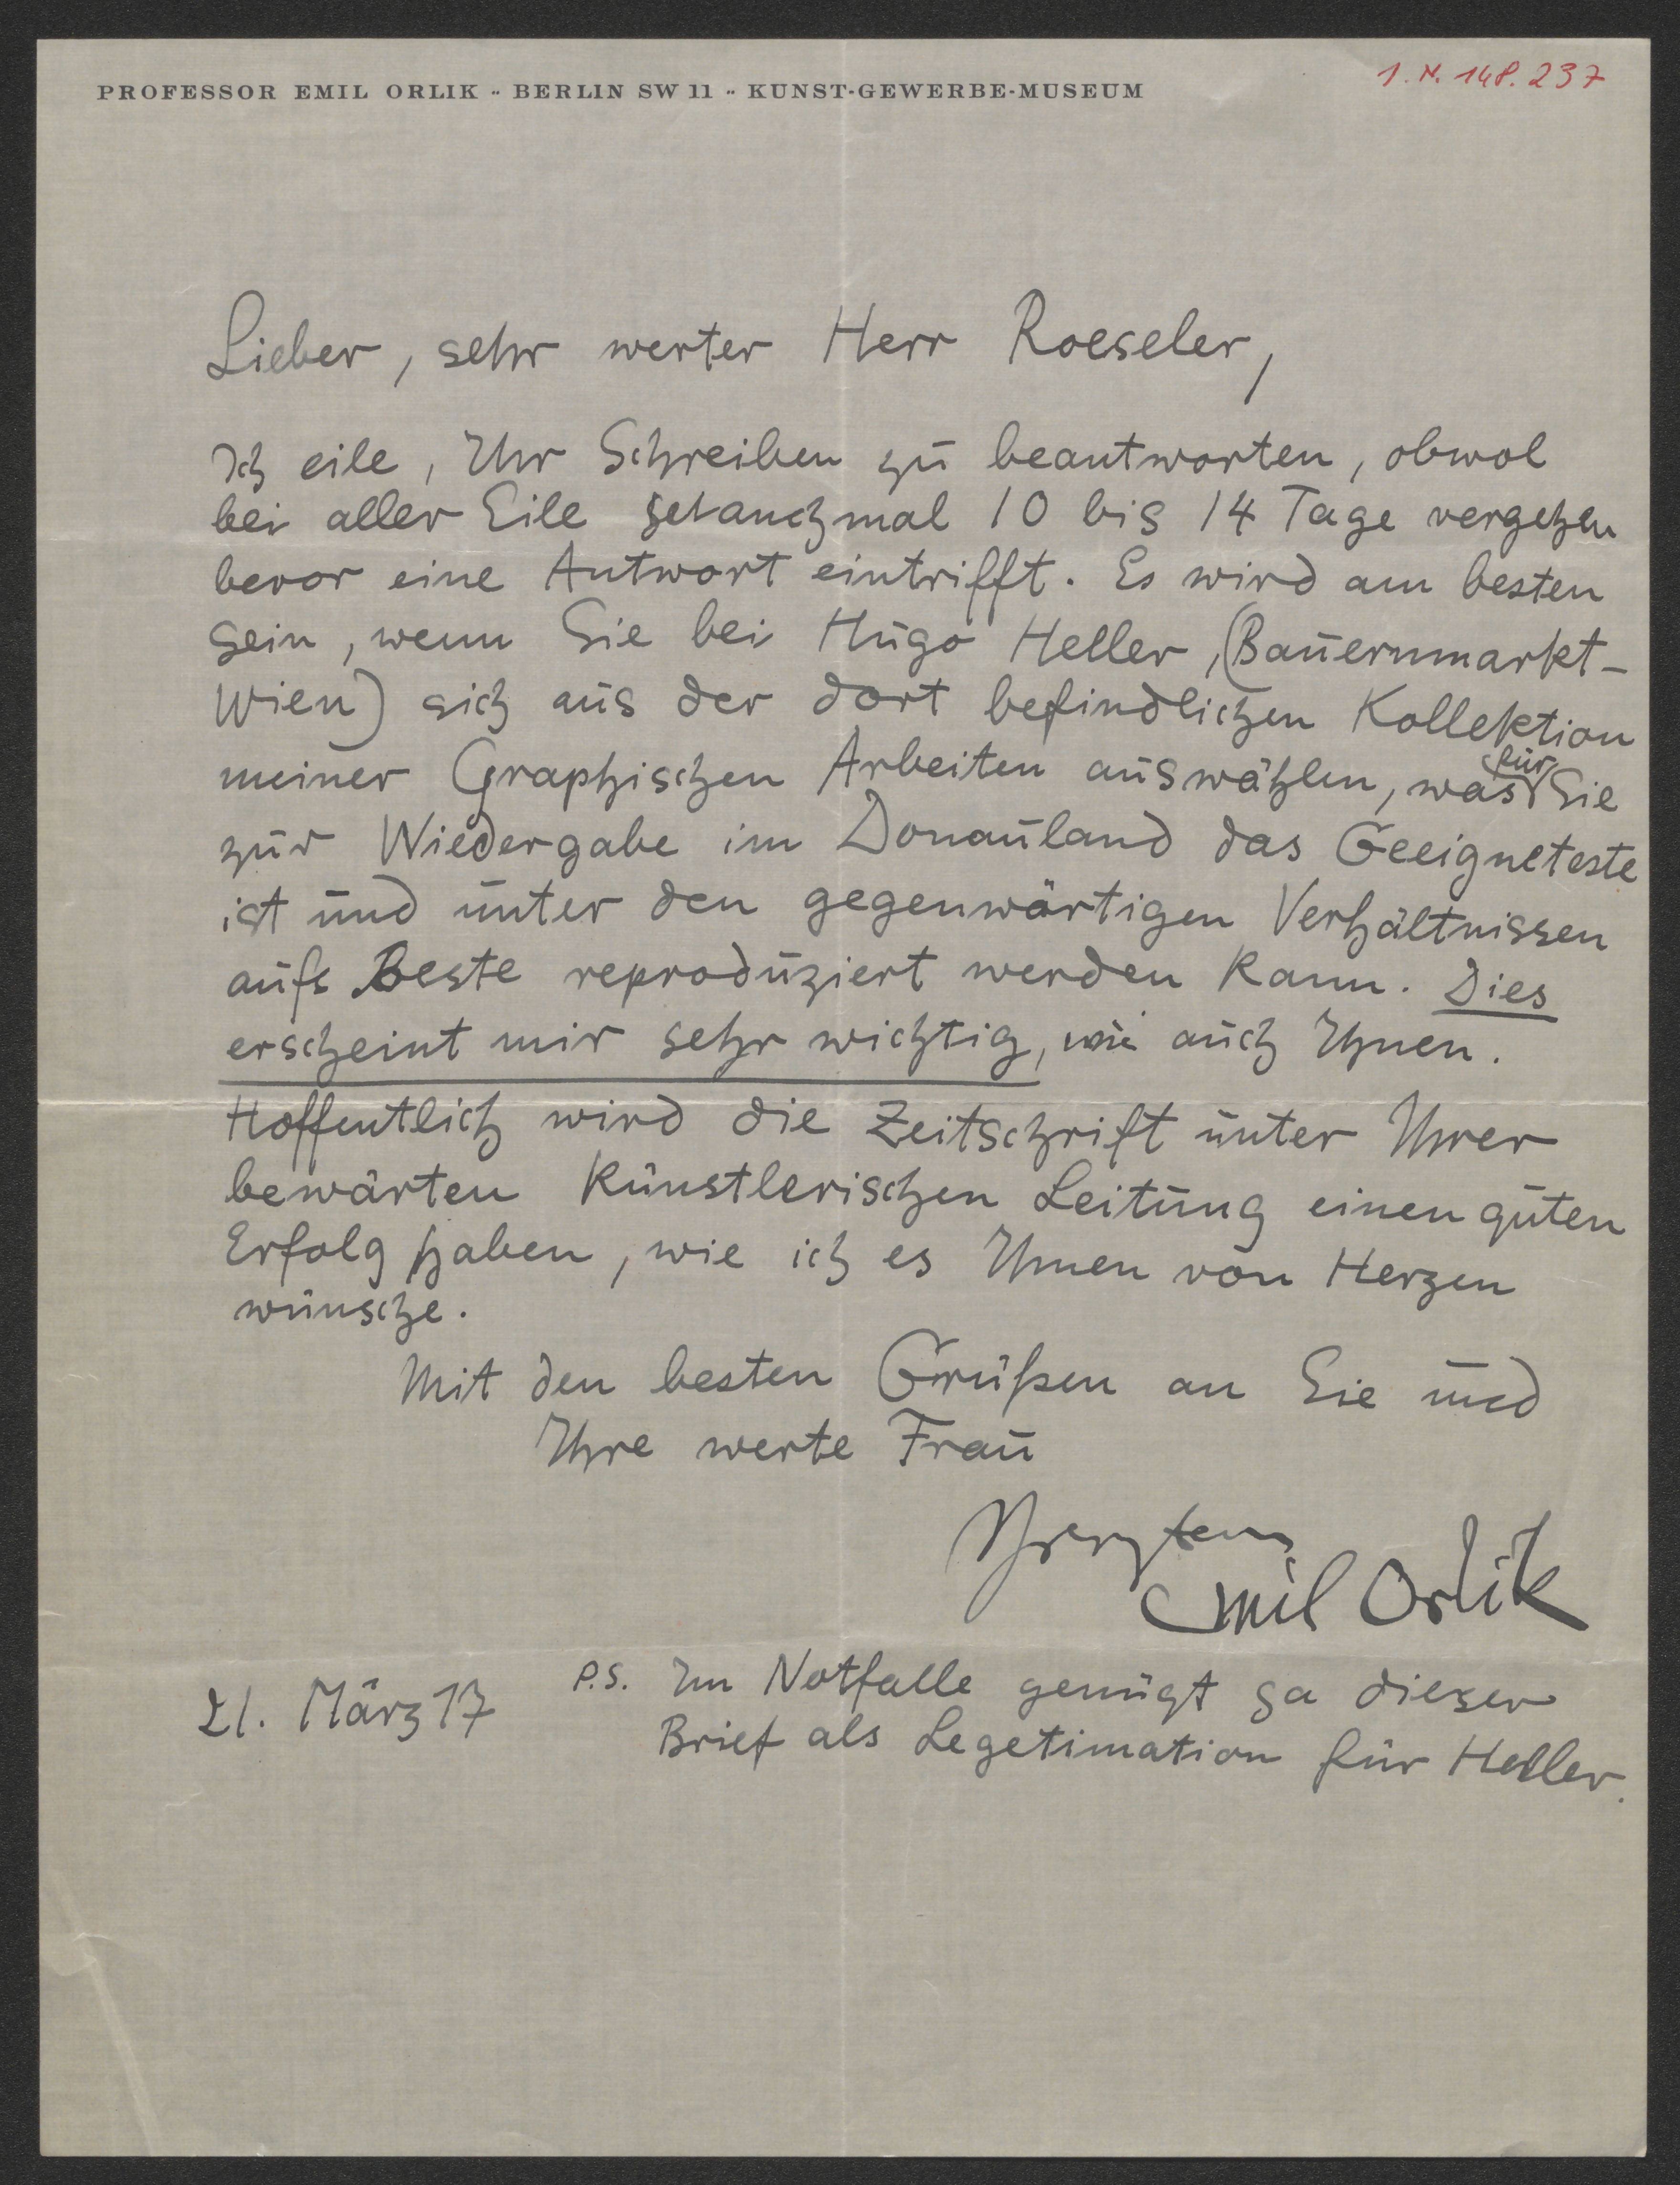 PROFESSOR EMIL ORLIK ·· BERLIN SW 11 ·· KUNST-GEWERBE-MUSEUM
1. N. 148.237
Lieber, sehr werter Herr Roeseler,
Ich eile, Ihr Schreiben zu beantworten, obwol
bei aller Eile 10 bis 14 Tage vergehen
bevor eine Antwort eintrifft. Es wird am besten
sein, wenn Sie bei Hugo Heller, (Bauernmarkt-
Wien) sich aus der dort befindlichen Kollektion
meiner Graphischen Arbeiten auswählen, was für Sie
zur Wiedergabe im Donauland das Geeigneteste
ist und unter den gegenwärtigen Verhältnissen
aufs Beste reproduziert werden kann. Dies
erscheint mir sehr wichtig, wie auch Ihnen.
Hoffentlich wird die Zeitschrift unter Ihrer
bewärten künstlerischen Leitung einen guten
Erfolg haben, wie ich es Ihnen von Herzen
wünsche.
Mit den besten Grüßen an Sie und
Ihre werte Frau
Emil Orlik
21. März 17
P.S. Im Notfalle genügt ja dieser
Brief als Legetimation für Heller.